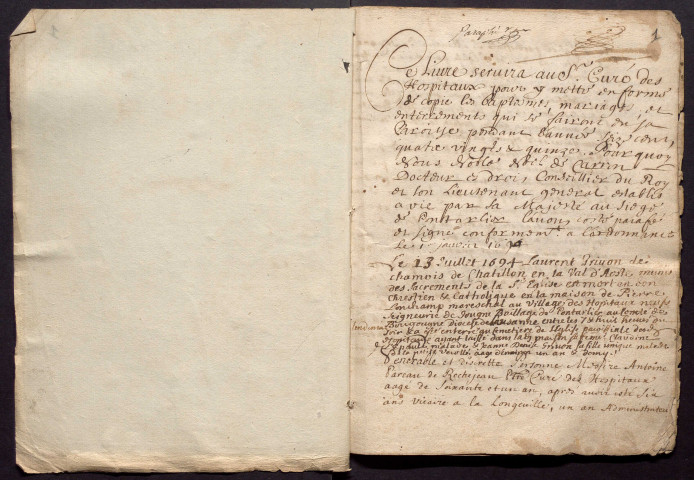 Paraphé
1
Ce Livre seruira au Sr. Curé des
Hospitaux pour y mettre en forme
de copie les baptesmes, mariages, et
enterrements qui se fairont en sa
Paroisse pendant l'année seize cent
quatre vingts & quinze. Pourquoy
Nous Noble
Docteur es droits, Conseillier du Roy
et son Lieutenant general establis
a vie par sa Majesté au Siege
de Pontarlier l'auons cotté paraffé
et signé conformemt. a l'ordonnance
le 1 janvier 169
Le 13 Juillet 1694 Laurent
chamois de Chatillon en la Val d'Aoste, munis
des Sacrements de la Ste. Eglise est mort en bon
Chrestien & Catholique en la maison de Pierre
mareschal au village des Hopitaux neufs
Seigneurie de Jougne Baillage de Pontarlier au Comté de
Bourgougne Diocese de Lausanne entre les 7 & huit heures du
soir & a esté enterré au Cimetiere de l'Eglise paroissiale des
Hospitaux ayant laissé dans la maison
fille unique malade
aagé d'enuiron un an &
Venerable et discrette personne Messire Antoine
Parrau de Rochejean Ptre Curé des Hospitaux
aagé de soixante et un an, apres auoir esté six
ans vicaire a la Longeuille, un an Administrateur